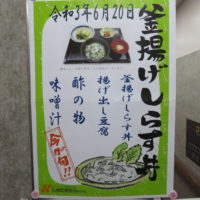 令和3年6月20日
釜揚げしらす丼
釜揚げしらす丼
揚げ出し豆腐
酢の物
味噌汁
今が旬!!